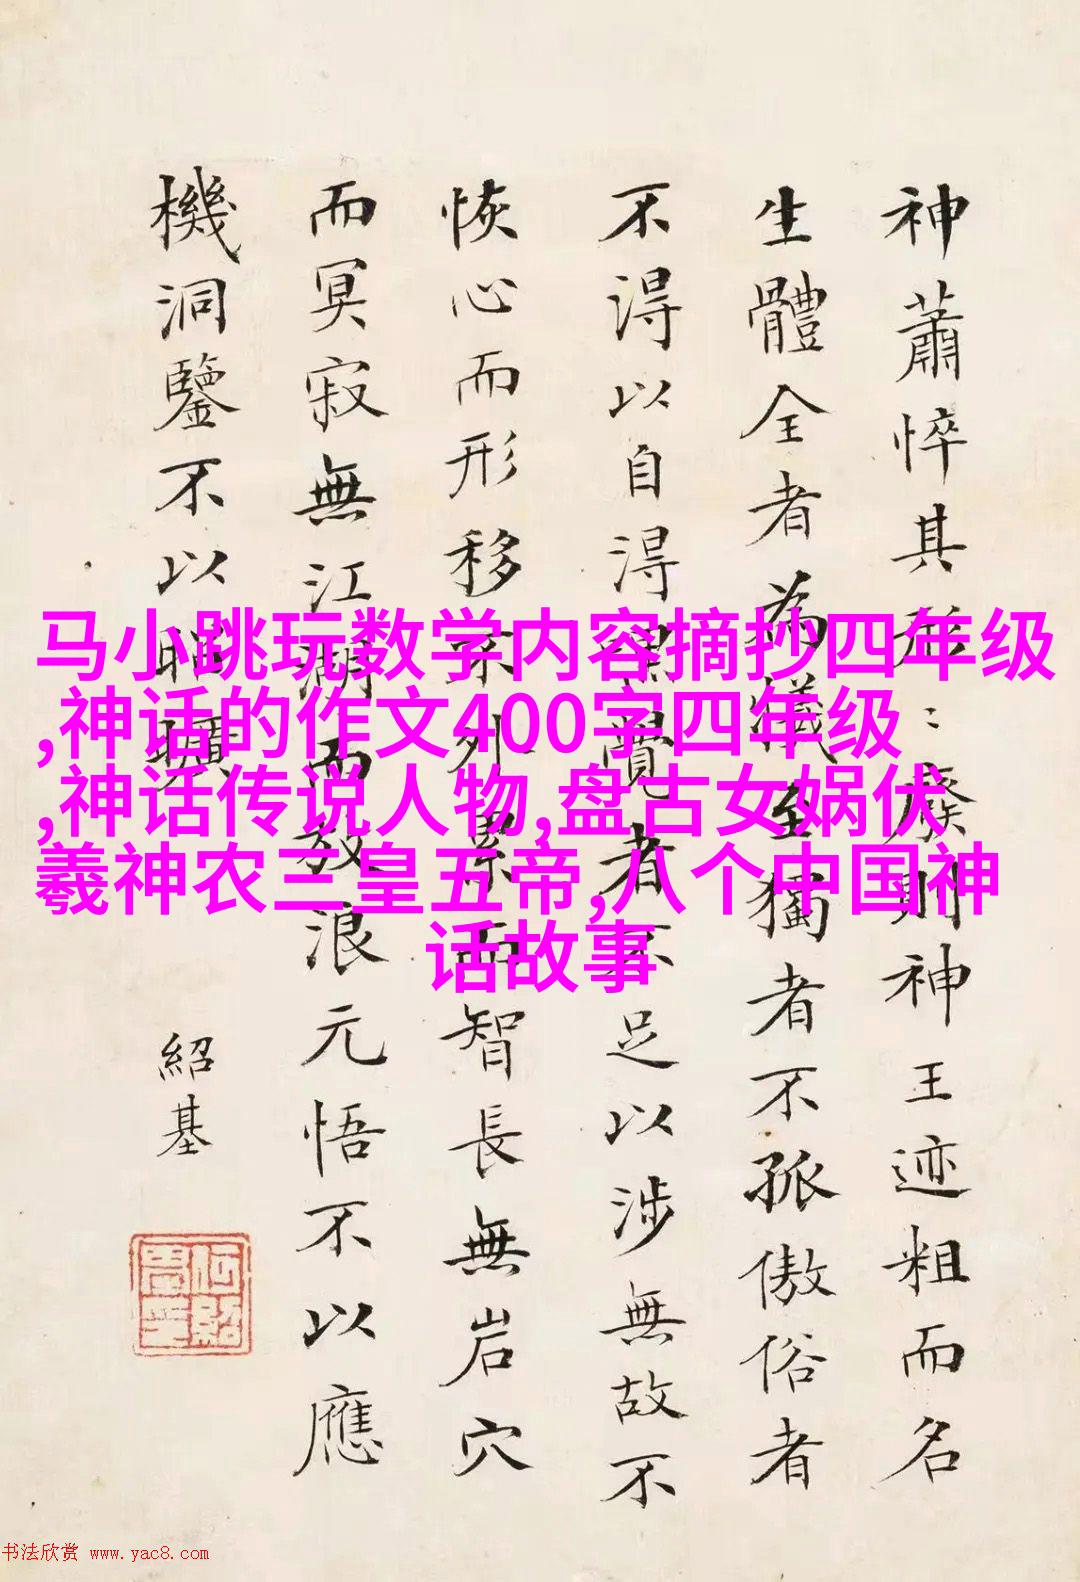 神蕭悴其形:廢則神王迹粗而名
生體全者為犧至獨者不孤傲俗者
不得以自得覺者不足以涉無故不
恢心而形移不外累而智長無岩穴
而冥寂無江湖而放浪元悟不以應
機洞鑒不以昭曠
紹基
马小跳玩数学内容摘抄四年级
,神话的作文400字四年级
,神话传说人物,盘古女娲伏
羲神农三皇五帝,八个中国神
话故事
书法欣赏 www.yac8.com